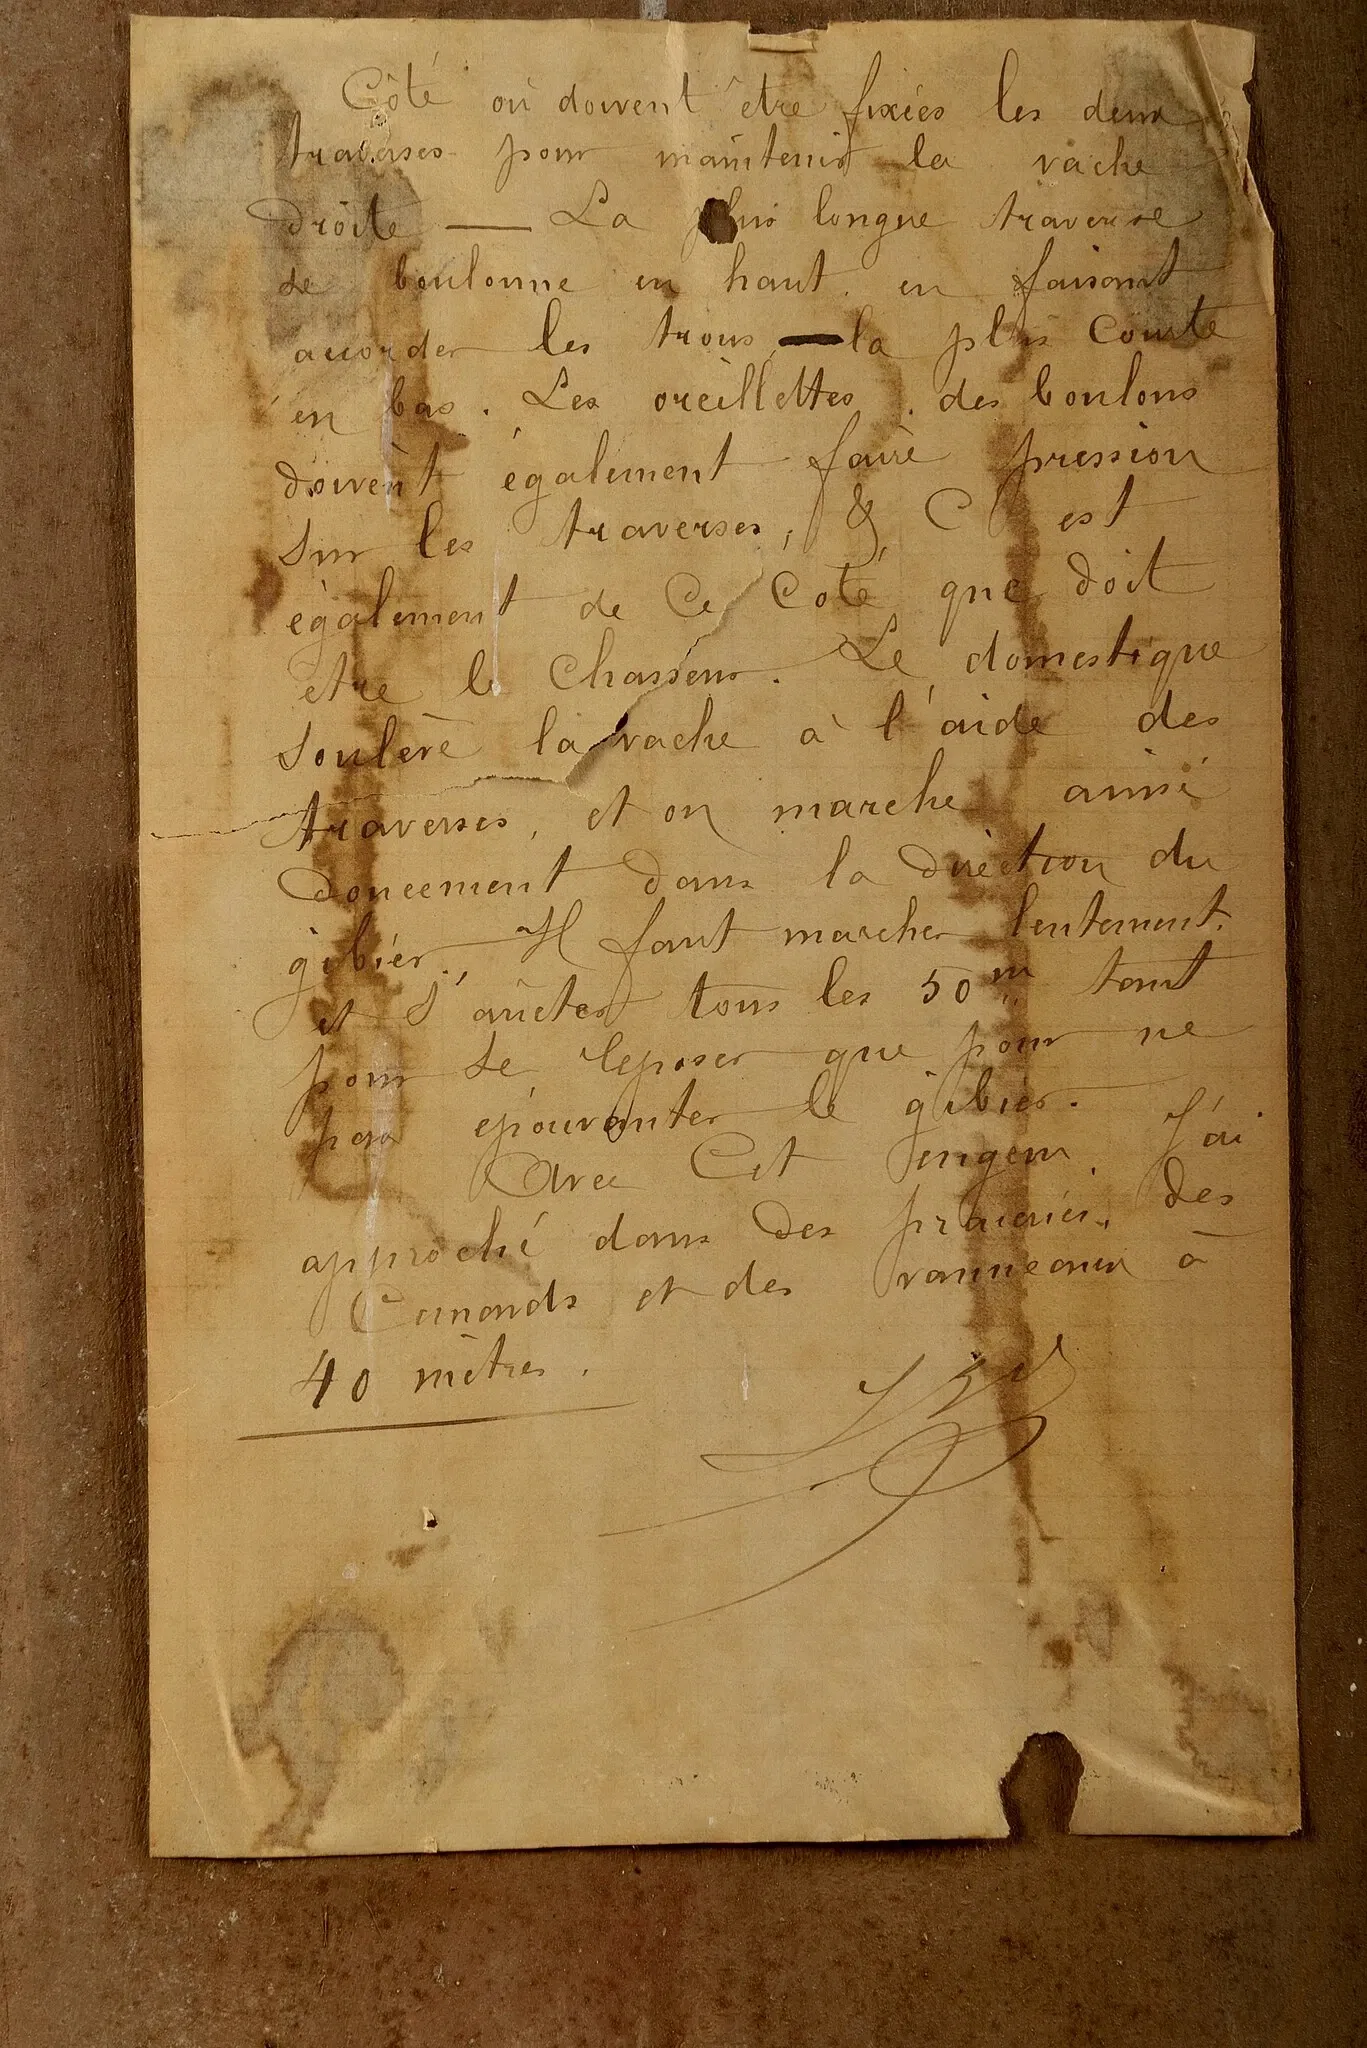 Côté où doivent être fixées les deux
traverses pour maintenir la vache
droite — La plus longue traverse
se boulonne en haut en faisant
accorder les trous, — la plus courte
en bas. Les oreillettes des boulons
doivent également faire pression
sur les traverses, & C'est
également de ce côté que doit
être le chasseur. Le domestique
soulève la vache à l'aide des
traverses, et on marche ainsi
doucement dans la direction du
gibier. Il faut marcher lentement
et s'arrêter tous les 50m tant
pour se reposer que pour ne
pas épouvanter le gibier.
Avec cet engin J'ai
approché dans des prairies, des
Canards et des vanneaux à
40 mètres.